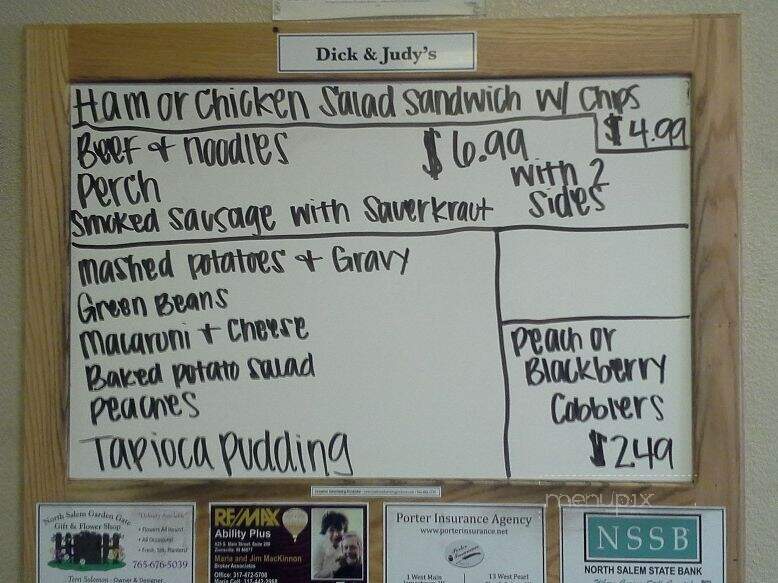 Dick & Judy's
Ham or Chicken Salad Sandwich w/ Chips
$4.99
Beef & noodles
$6.99
Perch
with 2
Smoked Sausage with Sauerkraut
Sides
mashed potatoes & Gravy
Green Beans
Macaroni + Cheese
Baked potato Salad
Peaches
Tapioca Pudding
Peach or
Blackberry
Cobblers
$2.49
menupix
North Salem Garden Gate
Gift & Flower Shop
765-676-5039
RE/MAX
Ability Plus
Maria and Jim MacKinnon
Broker Associates
Office: 317-472-5700
Porter Insurance Agency
www.porterinsurance.net
1 West Main
13 West Pearl
NSSB
NORTH SALEM STATE BANK